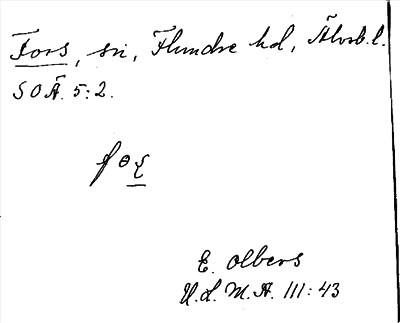 Fors, sn, Flundre hd, Älvsb. l.
SOÄ. 5:2.
E. Olbers
U.L.M.A. 111:43